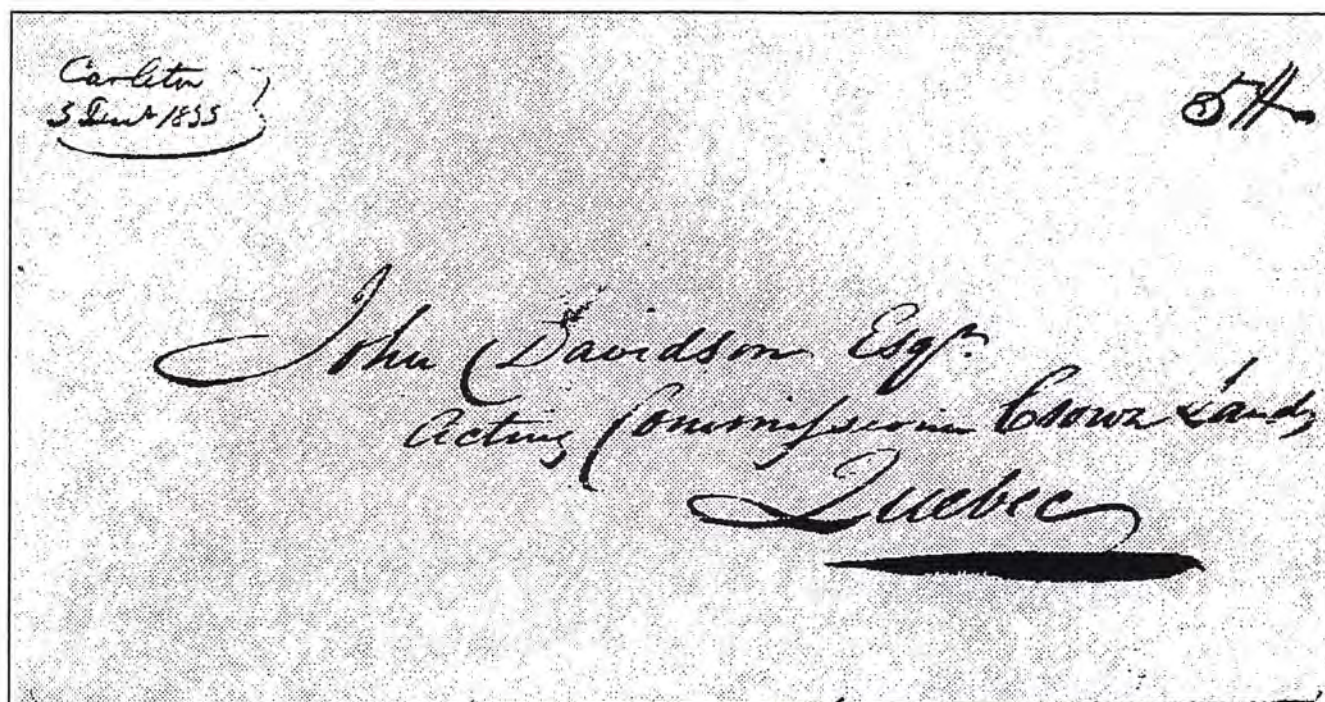 Carleton
5 1835
John Davidson Esqr.
Acting Commissioner Crown Lands
Quebec